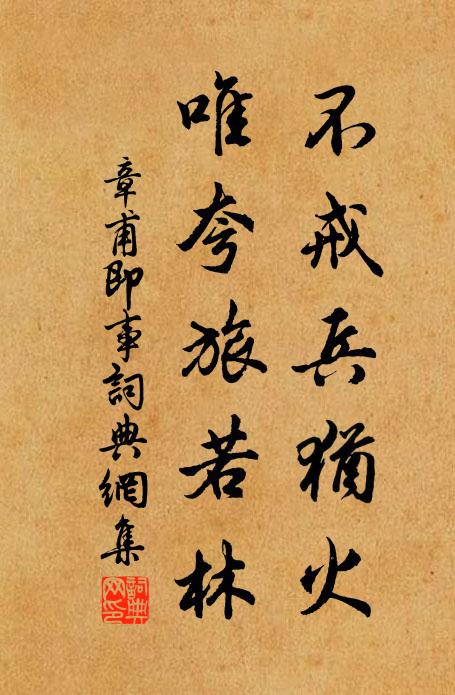 不戒兵猶火
唯夸旅若林
章甫即事詞典網集
詞典网印